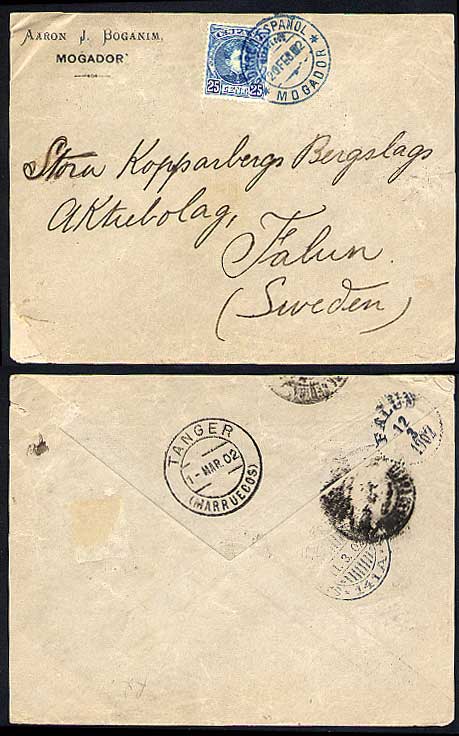 AARON J. BOGANIM,
MOGADOR
ESPAÑOL
MOGADOR
25 CENTS 25
Stora Kopparbergs Bergslags
Aktiebolag,
Falun.
(Sweden)
TANGER
1-MAR.02
(MARRUECOS)
FALUN
12
3
1902
141A